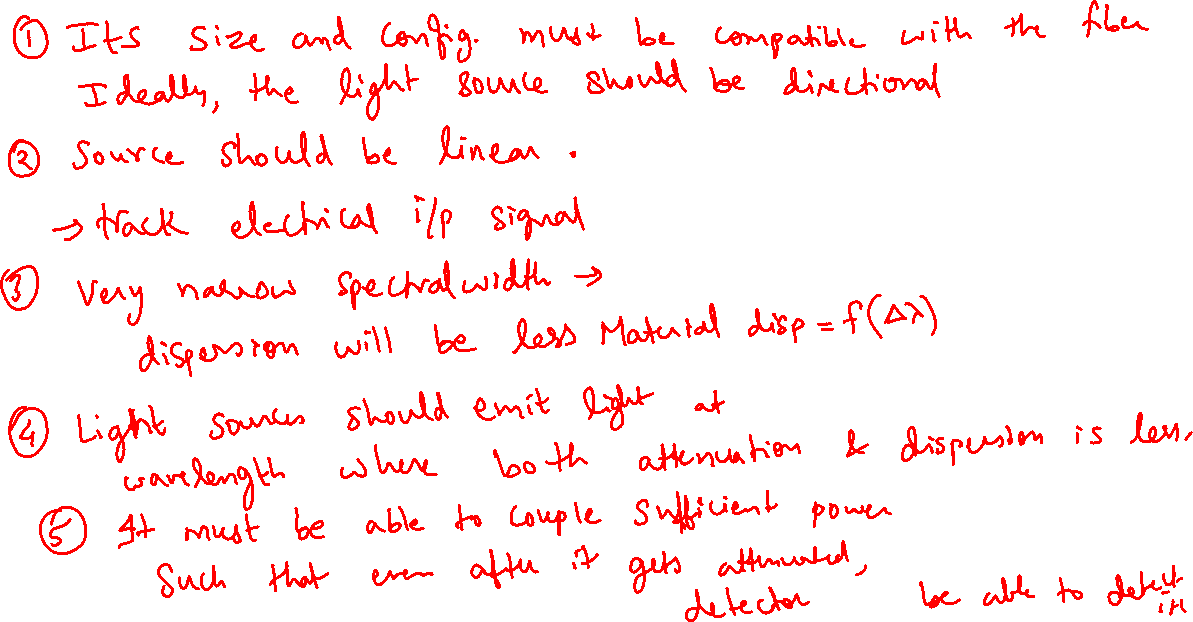 ① Its size and config. must be compatible with the fiber
Ideally, the light source should be directional
② Source should be linear.
→ track electrical i/p signal
③ Very narrow spectral width →
dispersion will be less Material disp = f(Δλ)
④ Light sources should emit light at
wavelength where both attenuation & dispersion is less.
⑤ It must be able to couple sufficient power
Such that even after it gets attenuated,
detector be able to detect it